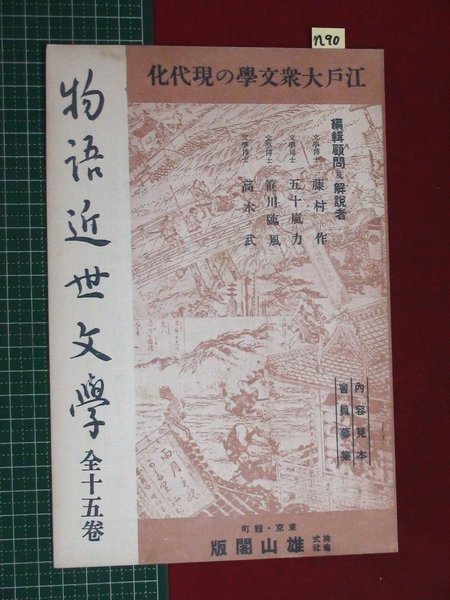 n90
江戸大衆文學の現代化
編輯顧問及解説者
文學博士 藤村作
文學博士 五十嵐力
文學博士 笹川臨風
文學博士 高木武
物語近世文學 全十五卷
內容見本
會員募集
東京・麴町
株式會社 雄山閣版